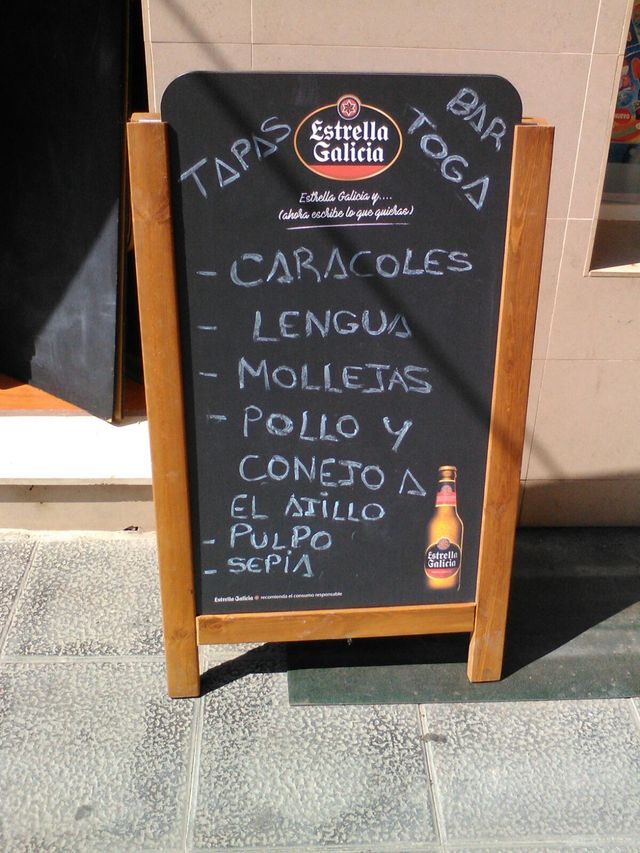 TAPAS
BAR
TOGA
Estrella
Galicia
Estrella Galicia y....
(ahora escribe lo que quieras)
- CARACOLES
- LENGUA
- MOLLEJAS
- POLLO Y
CONEJO A
EL AJILLO
- PULPO
- SEPIA
Estrella
Galicia
Estrella Galicia recomienda el consumo responsable